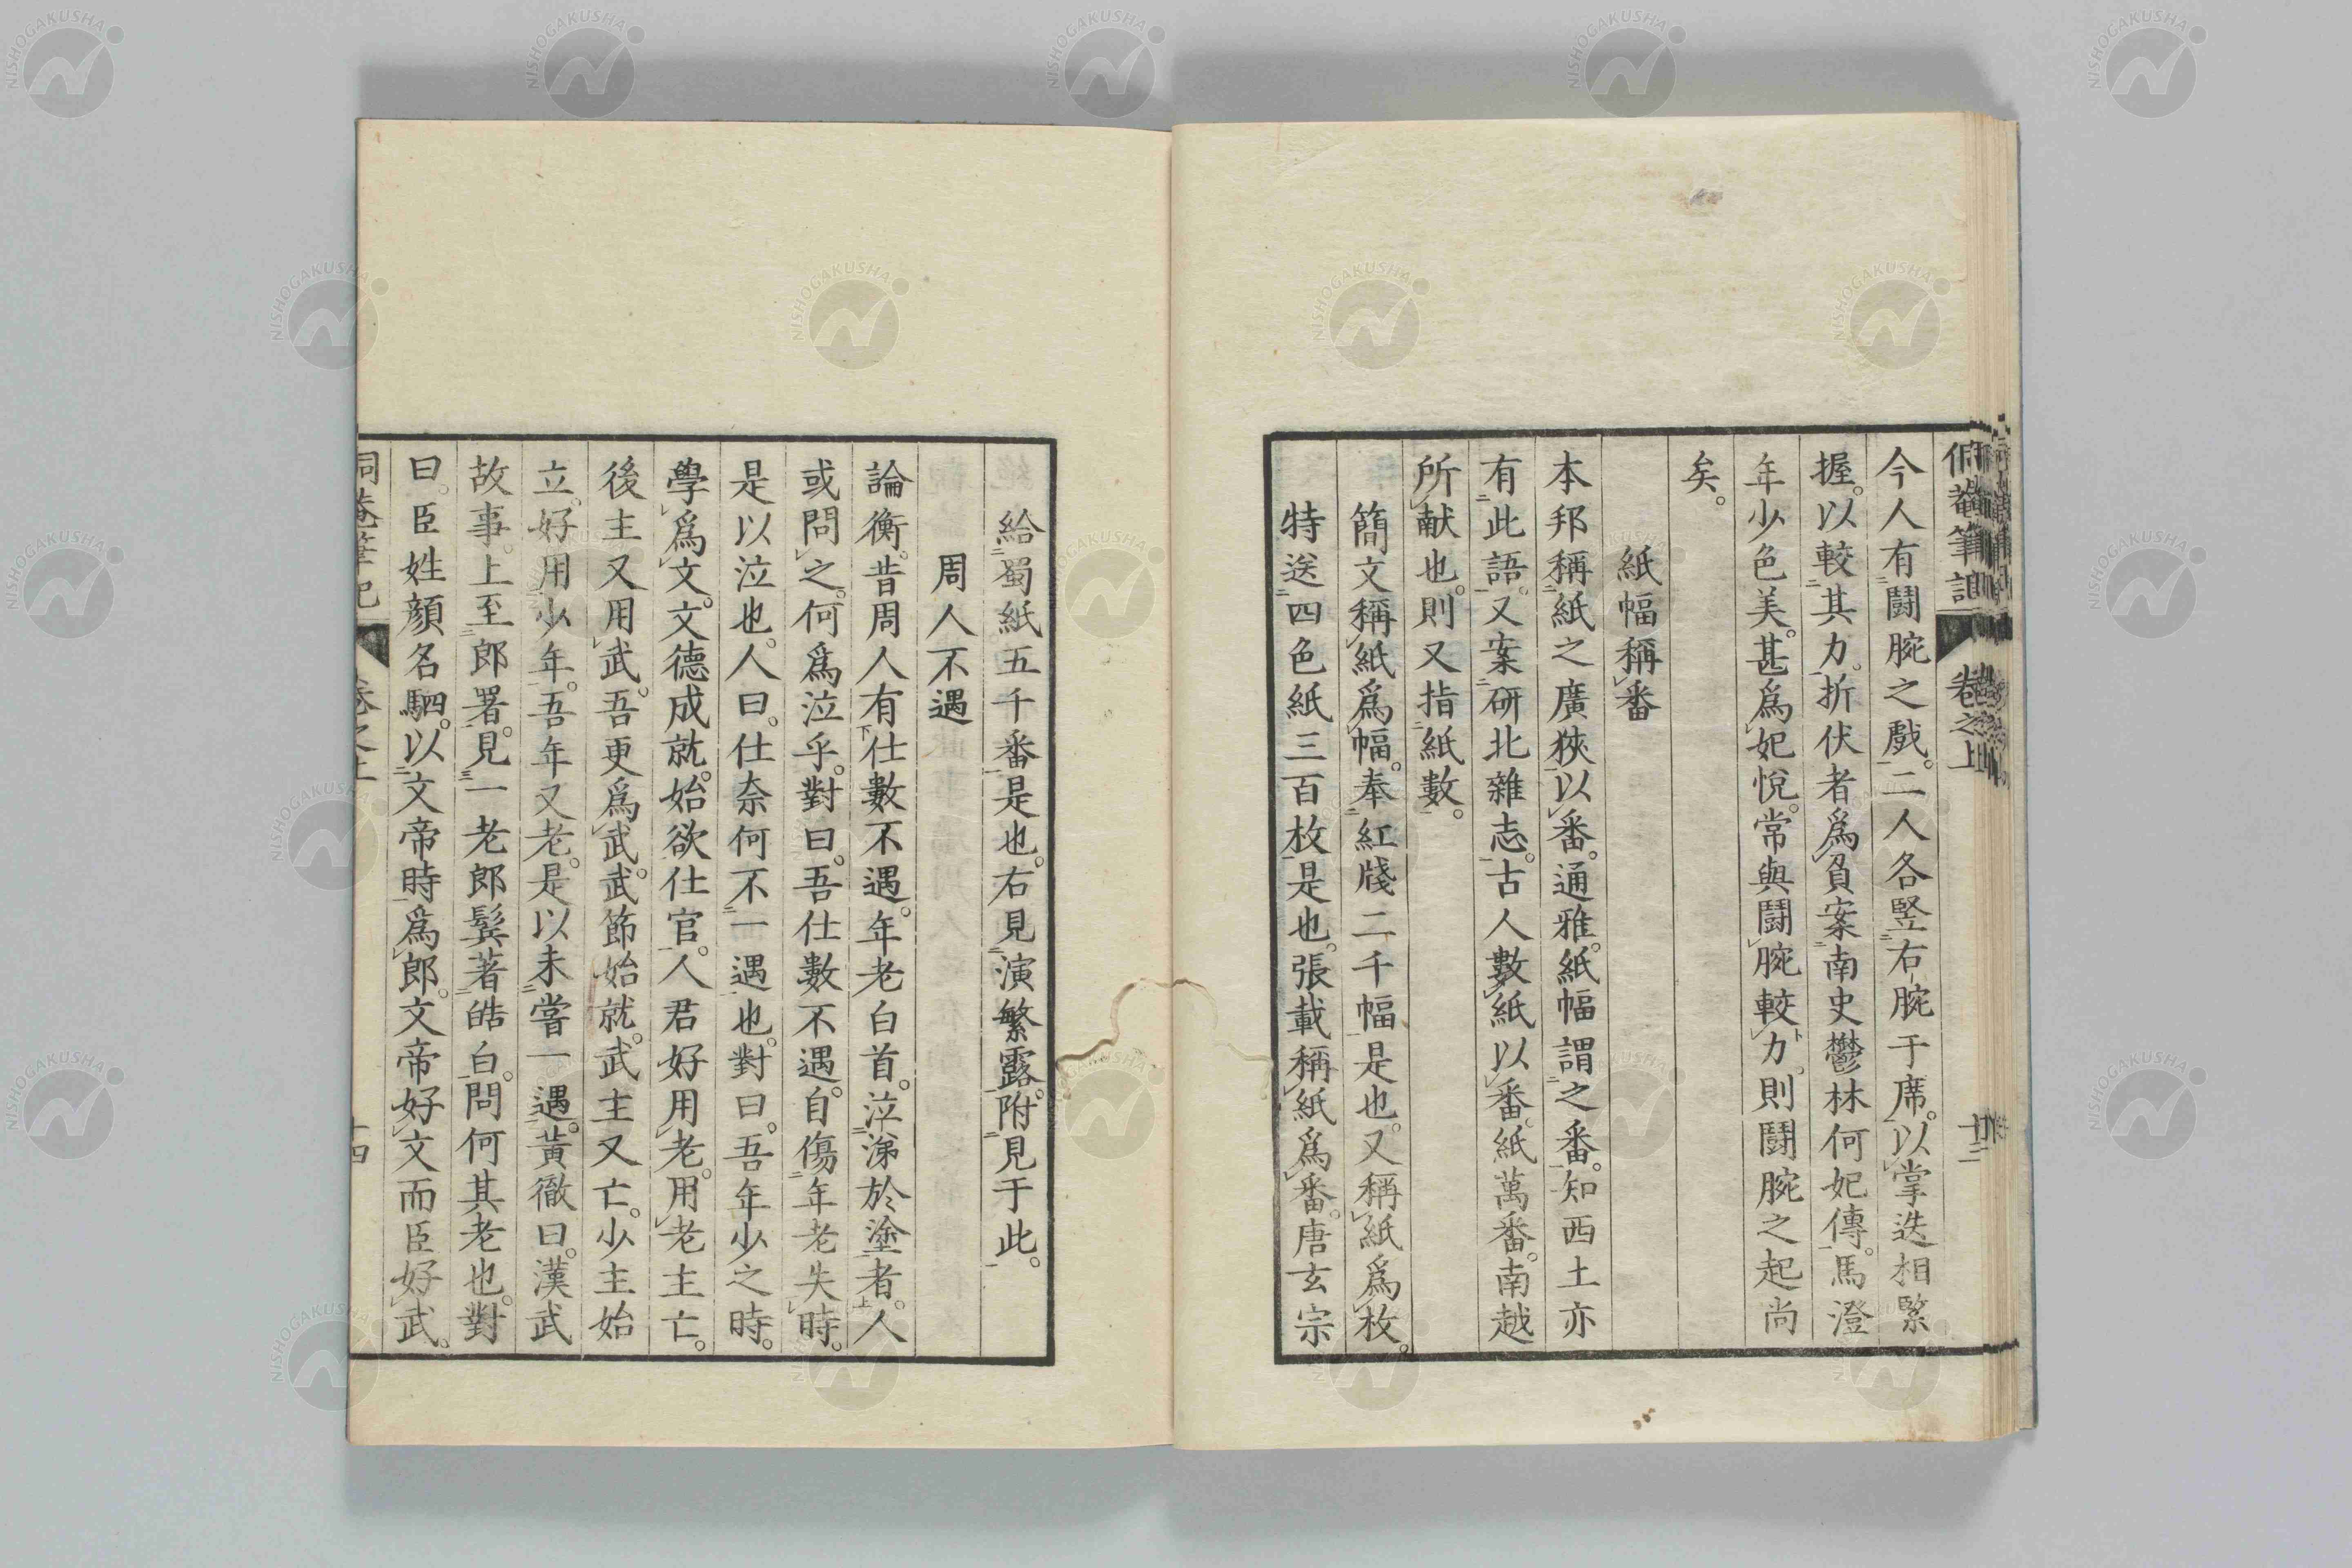 今人有鬪腕之戲。二人各竪右腕于席。以掌迭相緊
握。以較其力。折伏者爲負案南史鬱林何妃傳。馬澄
年少色美。甚爲妃悅。常與鬪腕較力。則鬪腕之起尚
矣。
紙幅稱番
本邦稱紙之廣狹以番。通雅。紙幅謂之番。知西土亦
有此語。又案研北雜志。古人數紙以番。紙萬番。南越
所献也。則又指紙數。
簡文稱紙爲幅。奉紅牋二千幅是也。又稱紙爲枚。
特送四色紙三百枚是也。張載稱紙爲番。唐玄宗
給蜀紙五千番是也。右見演繁露。附見于此。
周人不遇
論衡。昔周人有仕數不遇。年老白首。泣涕於塗者。人
或問之。何爲泣乎。對曰。吾仕數不遇。自傷年老失時。
是以泣也。人曰。仕奈何不一遇也。對曰。吾年少之時。
學爲文。文德成就。始欲仕官。人君好用老。用老主亡。
後主又用武。吾更爲武。武節始就。武主又亡。少主始
立。好用少年。吾年又老。是以未嘗一遇。黃徹曰。漢武
故事。上至郎署。見一老郎鬂著皓白。問何其老也。對
曰。臣姓顔名駟。以文帝時爲郎。文帝好文而臣好武。
筆記 卷之上 十四
NISHOGAKUSHA